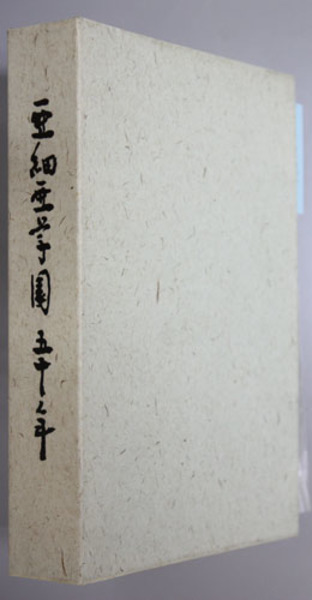 亜細亜学園 五十年